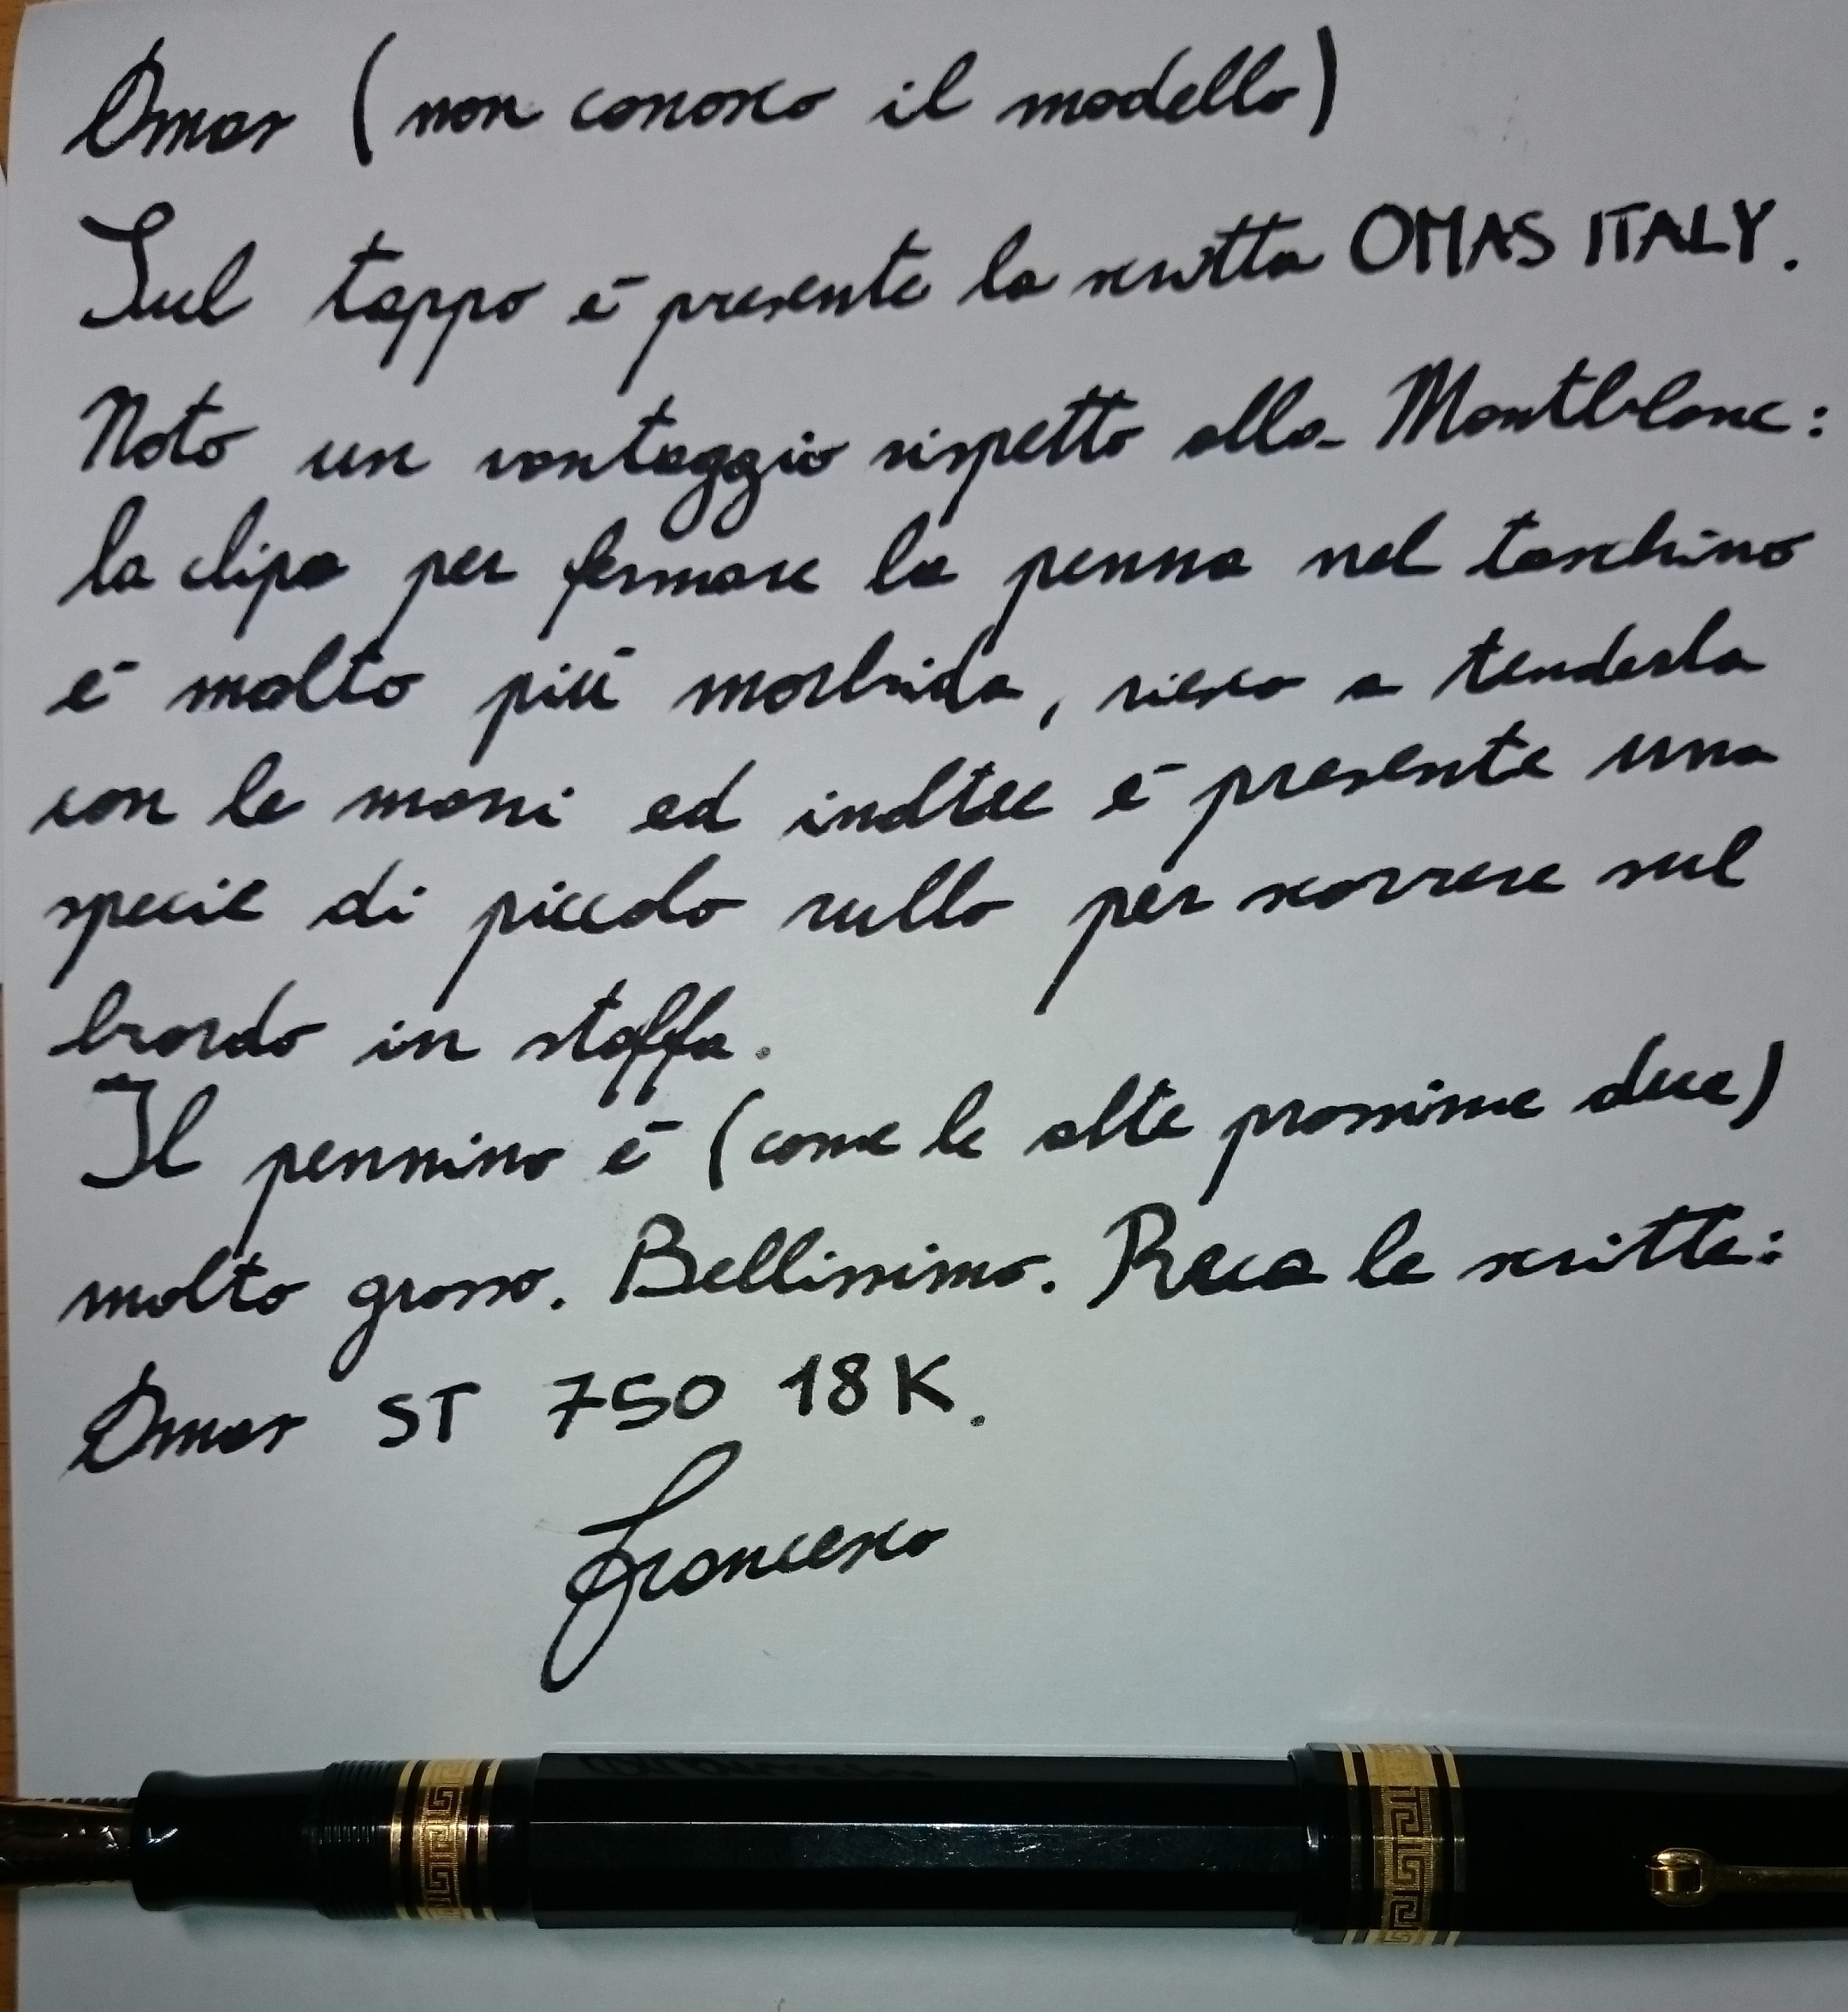 Omas (non conosco il modello)
Sul tappo è presente la scritta OMAS ITALY.
Noto un vantaggio rispetto alla Montblanc:
la clipa per fermare la penna nel taschino
è molto più morbida, riesco a tenderla
con le mani ed inoltre è presente una
specie di piccolo rullo per scorrere sul
bordo in stoffa.
Il pennino è (come le alte prossime due)
molto grosso. Bellissimo. Reca le scritte:
Omas ST 750 18K.
Francesco